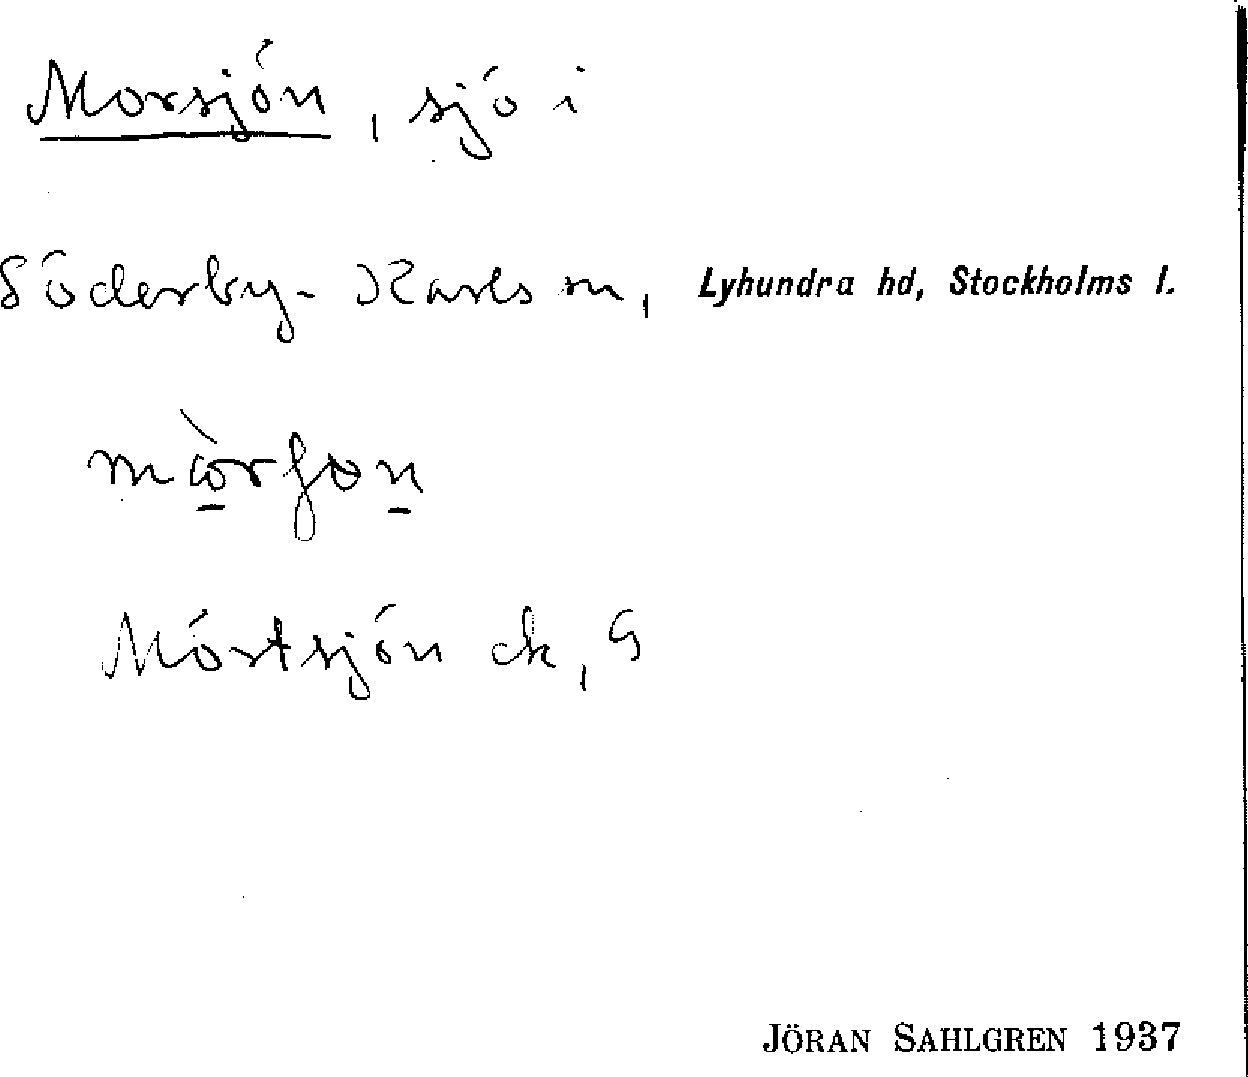 Morsjön, sjö i
Söderby-Karls sn, Lyhundra hd, Stockholms l.
Mörtsjön ek, G
JÖRAN SAHLGREN 1937